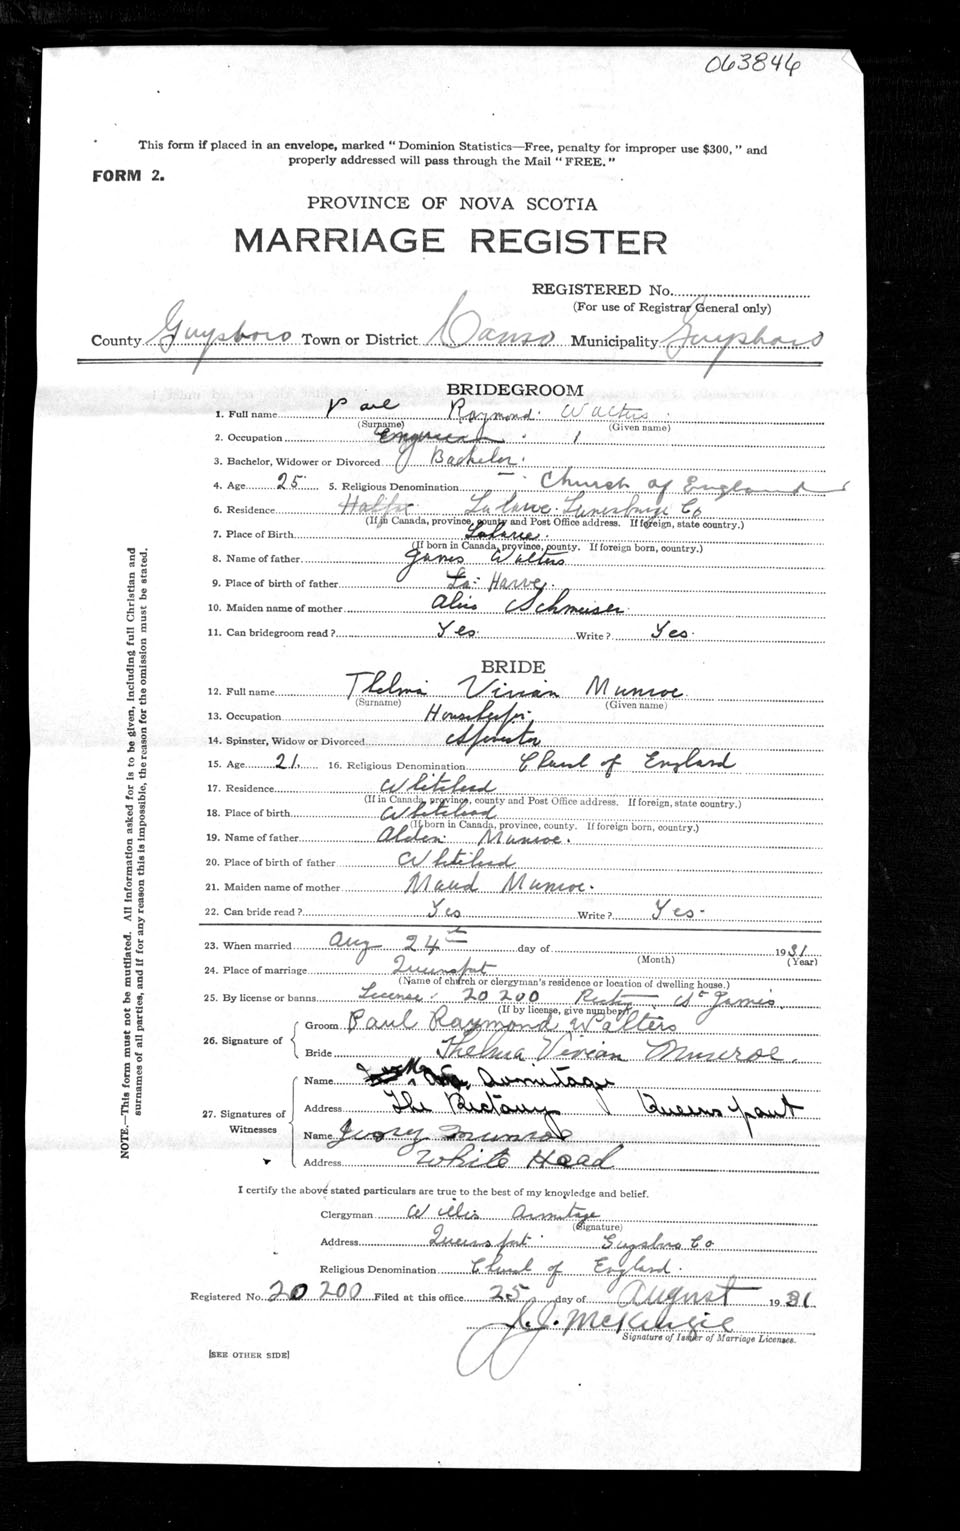 063846
This form if placed in an envelope, marked "Dominion Statistics—Free, penalty for improper use $300," and
properly addressed will pass through the Mail "FREE."
FORM 2.
PROVINCE OF NOVA SCOTIA
MARRIAGE REGISTER
REGISTERED No.
(For use of Registrar General only)
County Guysboro Town or District Canso Municipality Guysboro
BRIDEGROOM
1. Full name Paul Raymond Walters
(Surname) (Given name)
2. Occupation
3. Bachelor, Widower or Divorced Bachelor.
4. Age 25 5. Religious Denomination Church of England
6. Residence Halifax Lahave Lunenburg Co
(If in Canada, province, county and Post Office address. If foreign, state country.)
7. Place of Birth Lahave.
(If born in Canada, province, county. If foreign born, country.)
8. Name of father James Walters
9. Place of birth of father La Harve.
10. Maiden name of mother
11. Can bridegroom read? Yes. Write? Yes.
BRIDE
12. Full name Thelma Vivian Munroe.
(Surname) (Given name)
13. Occupation Housekeeper
14. Spinster, Widow or Divorced Spinster
15. Age 21. 16. Religious Denomination Church of England
17. Residence Whitehead
(If in Canada, province, county and Post Office address. If foreign, state country.)
18. Place of birth Whitehead
(If born in Canada, province, county. If foreign born, country.)
19. Name of father Alden Munroe.
20. Place of birth of father Whitehead
21. Maiden name of mother Maud Munroe.
22. Can bride read? Yes Write? Yes-
23. When married Aug 24th day of 1931
(Month) (Year)
24. Place of marriage Queensport
(Name of church or clergyman's residence or location of dwelling house.)
25. By license or banns License. 20200 St James
(If by license, give number)
26. Signature of
Groom Paul Raymond Walters
Bride Thelma Vivian Munroe.
27. Signatures of Witnesses
Name Armitage
Address The Rectory Queensport
Name Munroe
Address White Head
I certify the above stated particulars are true to the best of my knowledge and belief.
Clergyman Willis Armitage
(Signature)
Address Queensport Guysboro Co
Religious Denomination Church of England.
Registered No. 20200 Filed at this office 25 day of August 1931
J. McKenzie
Signature of Issuer of Marriage Licenses.
[SEE OTHER SIDE]
NOTE.—This form must not be mutilated. All information asked for is to be given, including full Christian and
surnames of all parties, and if for any reason this is impossible, the reason for the omission must be stated.